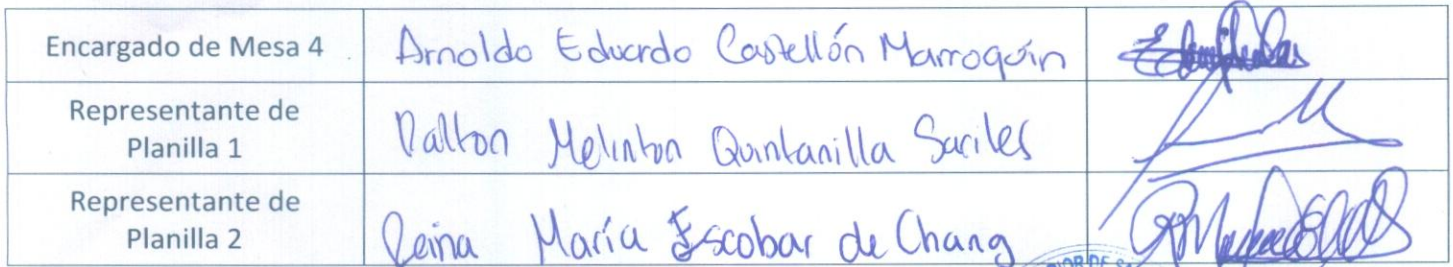 Encargado de Mesa 4 Arnoldo Eduardo Castellón Marroquín
Representante de
Planilla 1
Dalton Melinton Quintanilla Sariles
Representante de
Planilla 2
Reina María Escobar de Chang